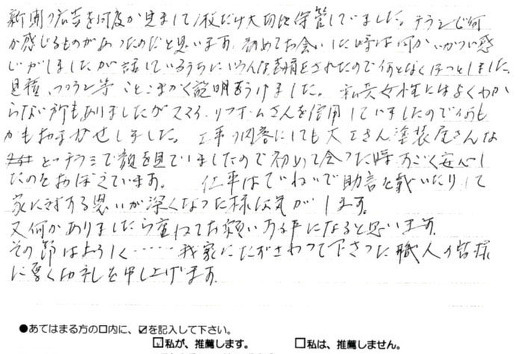 新聞の広告を何度か見まして1枚だけ大切に保管していました。チラシに何
か感じるものがあったのだと思います。初めてお会いした時は何かいかつい感
じがしましたが話しているうちにいろんな表情をされたので何となくほっとしました。
見積、プラン等 ことこまかく説明をうけました。 私共女性にはよくわか
らない所もありましたがスマイルリフォームさんを信用していましたので何も
かもおまかせしました。 工事の
とチラシで顔を見ていましたので初めて会った時すごく安心し
たのをおぼえています。 仕事はていねいで助言を戴いたりして
家に対する思いが深くなった様な気がします。
又何かありましたら重ねてお願いする事になると思います。
その節はよろしく……我家にたずさわって下さった職人の皆様
に厚く御礼を申し上げます。
●あてはまる方の□内に、☑を記入して下さい。
☑私が、推薦します。 □私は、推薦しません。